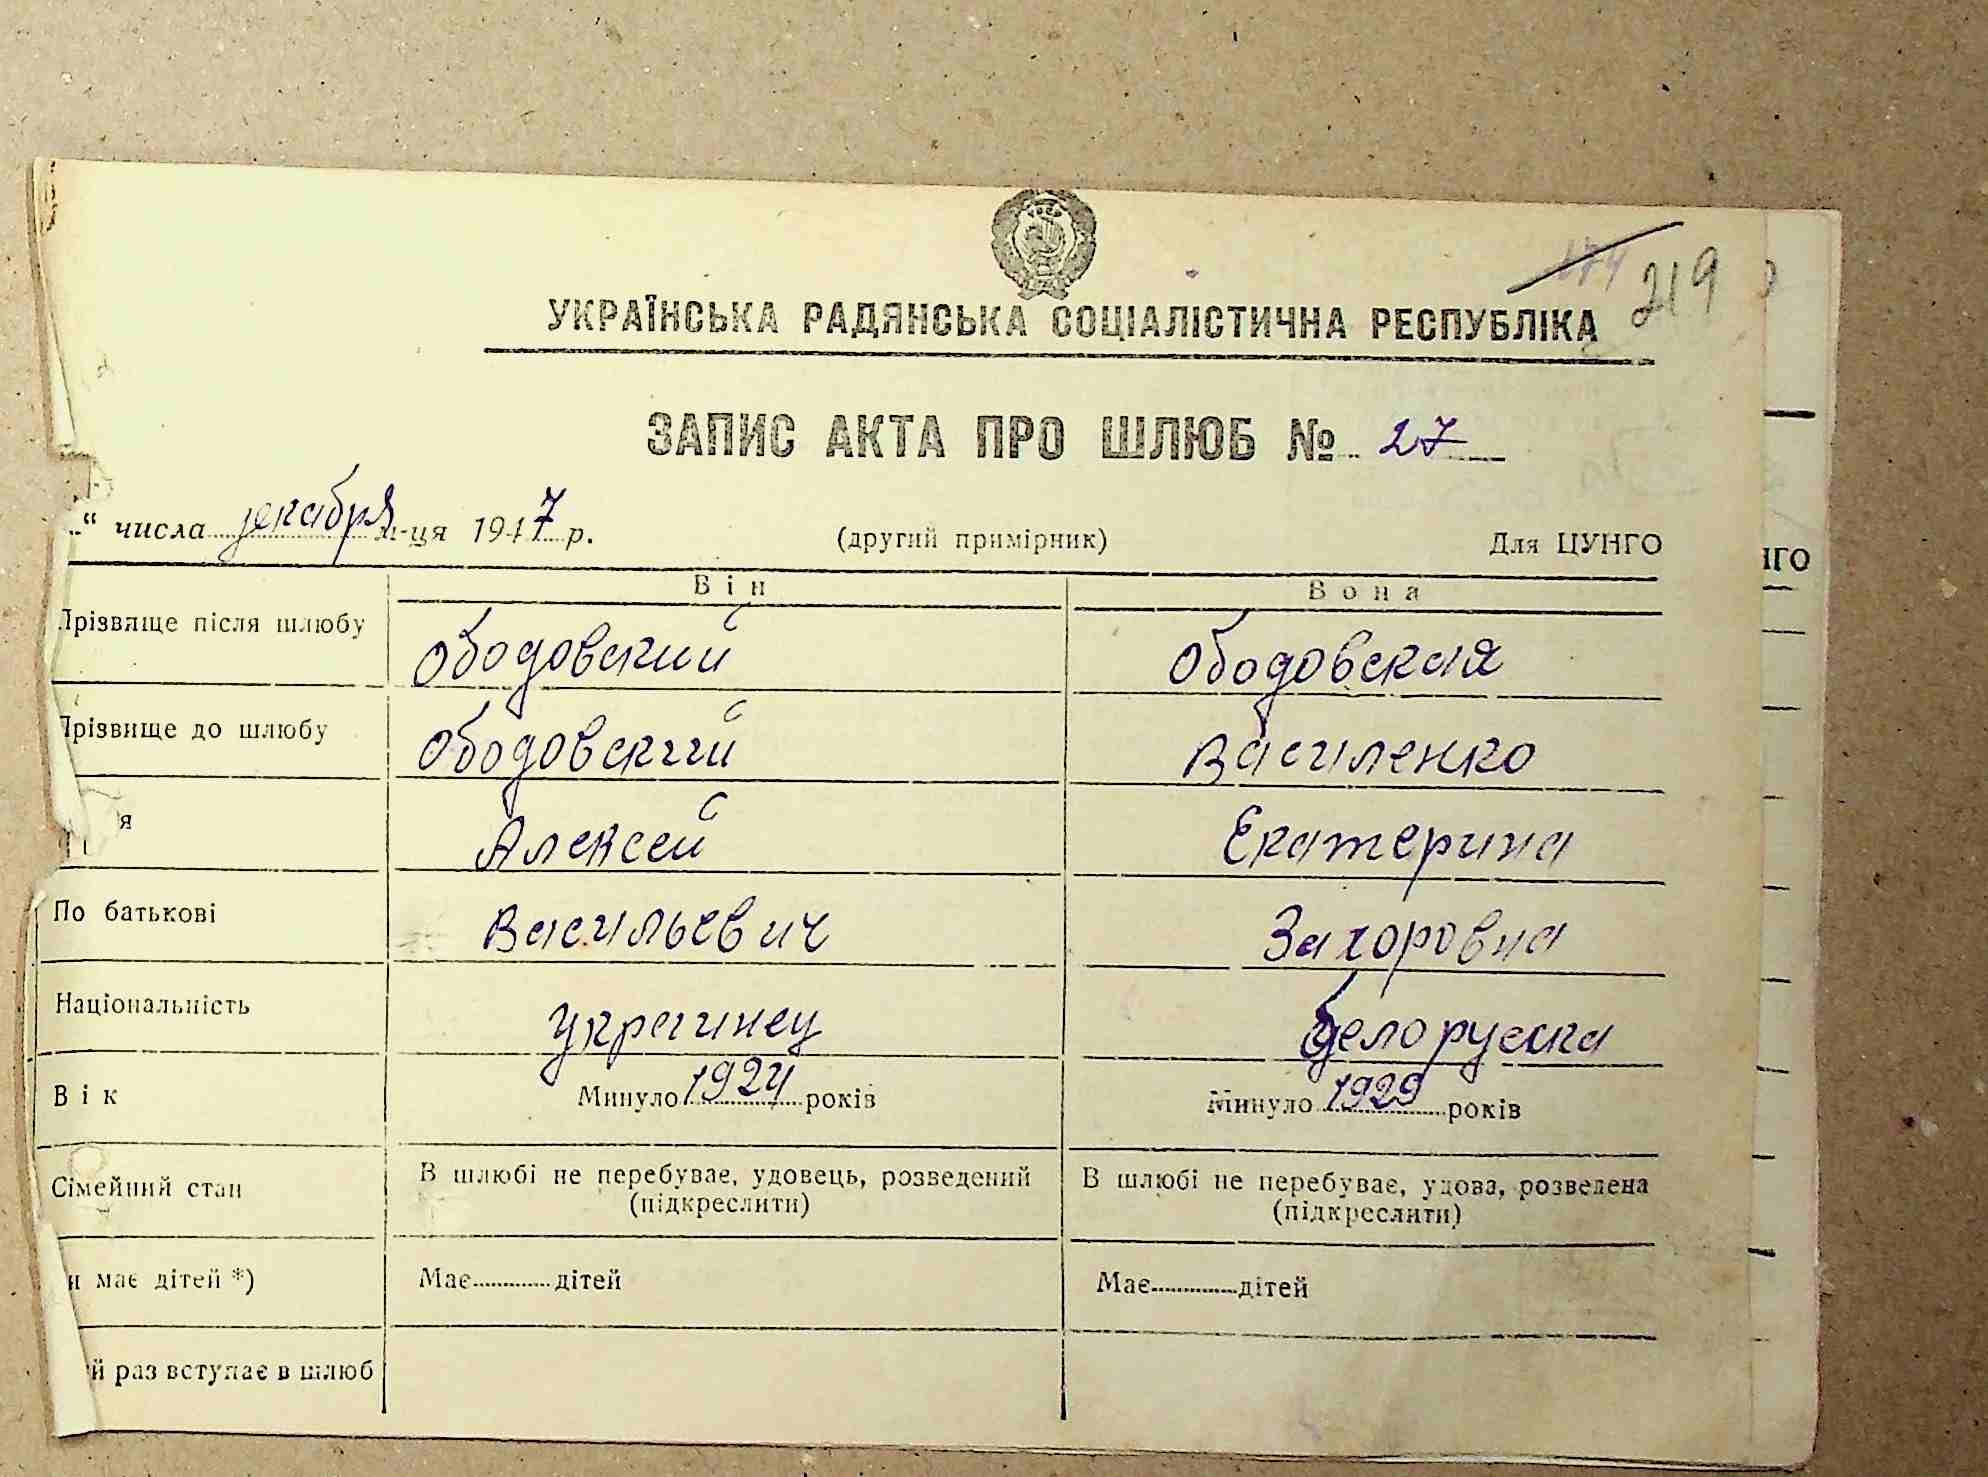 219
УКРАЇНСЬКА РАДЯНСЬКА СОЦІАЛІСТИЧНА РЕСПУБЛІКА
ЗАПИС АКТА ПРО ШЛЮБ № 27
“ числа декабря м-ця 1947 р. (другий примірник) Для ЦУНГО
НГО
Він Вона
Прізвище після шлюбу Ободовский Ободовская
Прізвище до шлюбу Ободовский Василенко
я Алексей Екатерина
По батькові Васильевич Захоровна
Національність украинец белоруска
Вік Минуло 1924 років Минуло 1929 років
Сімейний стан В шлюбі не перебуває, удовець, розведений В шлюбі не перебуває, удова, розведена
(підкреслити) (підкреслити)
и має дітей *) Має дітей Має дітей
й раз вступає в шлюб